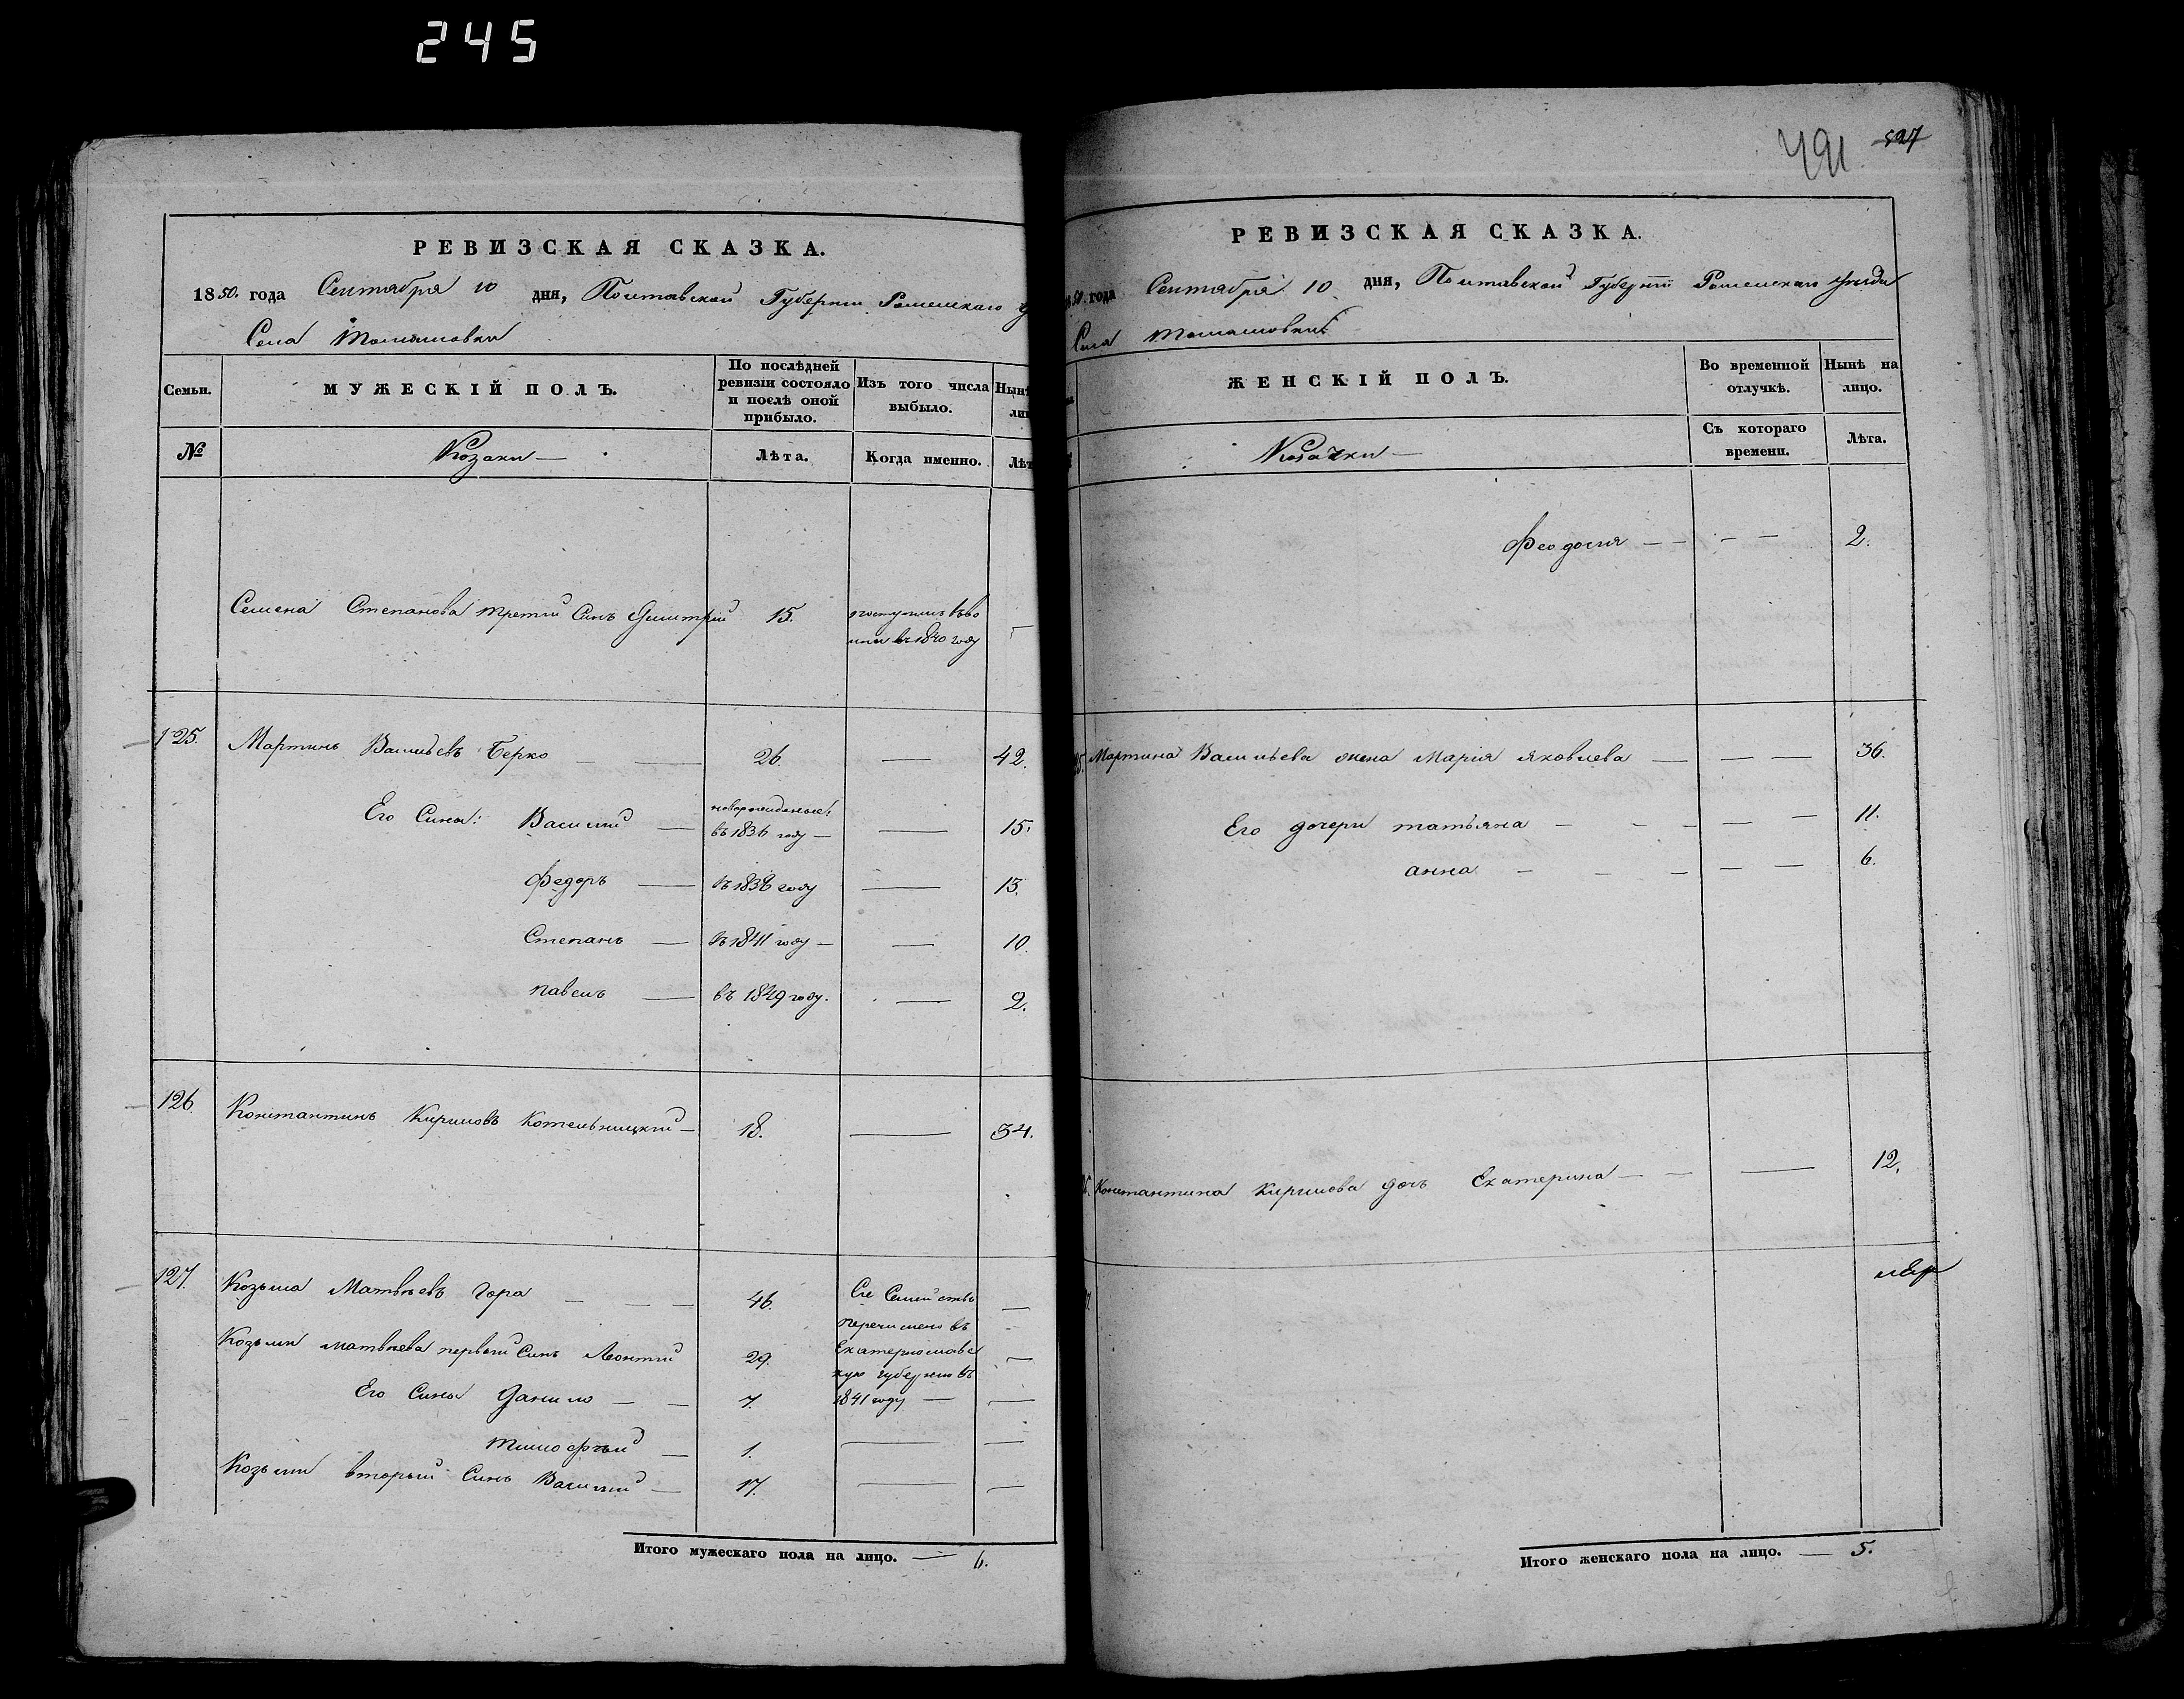 245
РЕВИЗСКАЯ СКАЗКА.
1850. года Сентября 10 дня, Полтавской Губернии Роменскаго У
Села Томашовки
Семьи. МУЖЕСКІЙ ПОЛЪ. По послѣдней ревизіи состояло и послѣ оной прибыло. Изъ того числа выбыло. Нынѣ
№ Козаки — Лѣта. Когда именно. Лѣт
Семена Степанова третий Синъ Дмитрій 15.
въ 1840 году
125. Мартинъ Васильевъ Берко — — 26. — 42.
Его Сины: Василий — новорожденные: въ 1836 году — — 15.
Федоръ — въ 1838 году — 13.
Степанъ — въ 1841 году — — 10.
павелъ — въ 1849 году. — 2.
126. Константинъ Кириловъ Котельницкий — 18. — 34.
127. Козьма Матвѣевъ Гора — — — 46. Сіе Семейство —
перечислено въ
Козьми матвѣева первый Синъ Леонтий 29. Екатеринослав —
скую губернію въ
Его Сины Данило — — 7. 1841 году — —
тимофѣй — 1. — —
Козьми вторый Синъ Василий — 17. — —
Итого мужескаго пола на лицо. — 6.
491 527
РЕВИЗСКАЯ СКАЗКА.
50. года Сентября 10 дня, Полтавской Губерніи Роменскаго уезда
Села Томашовки
ЖЕНСКІЙ ПОЛЪ. Во временной отлучкѣ. Нынѣ на лицо.
Козачки — Съ котораго времени. Лѣта.
Феодосия — — — — 2.
25. Мартина Васильева жена Марія яковлева — — — 36.
Его дочери татьяна — — — — — 11.
анна — — — — — 6.
Константина Кирилова дочь Екатерина — — — 12.
Итого женскаго пола на лицо. — 5.